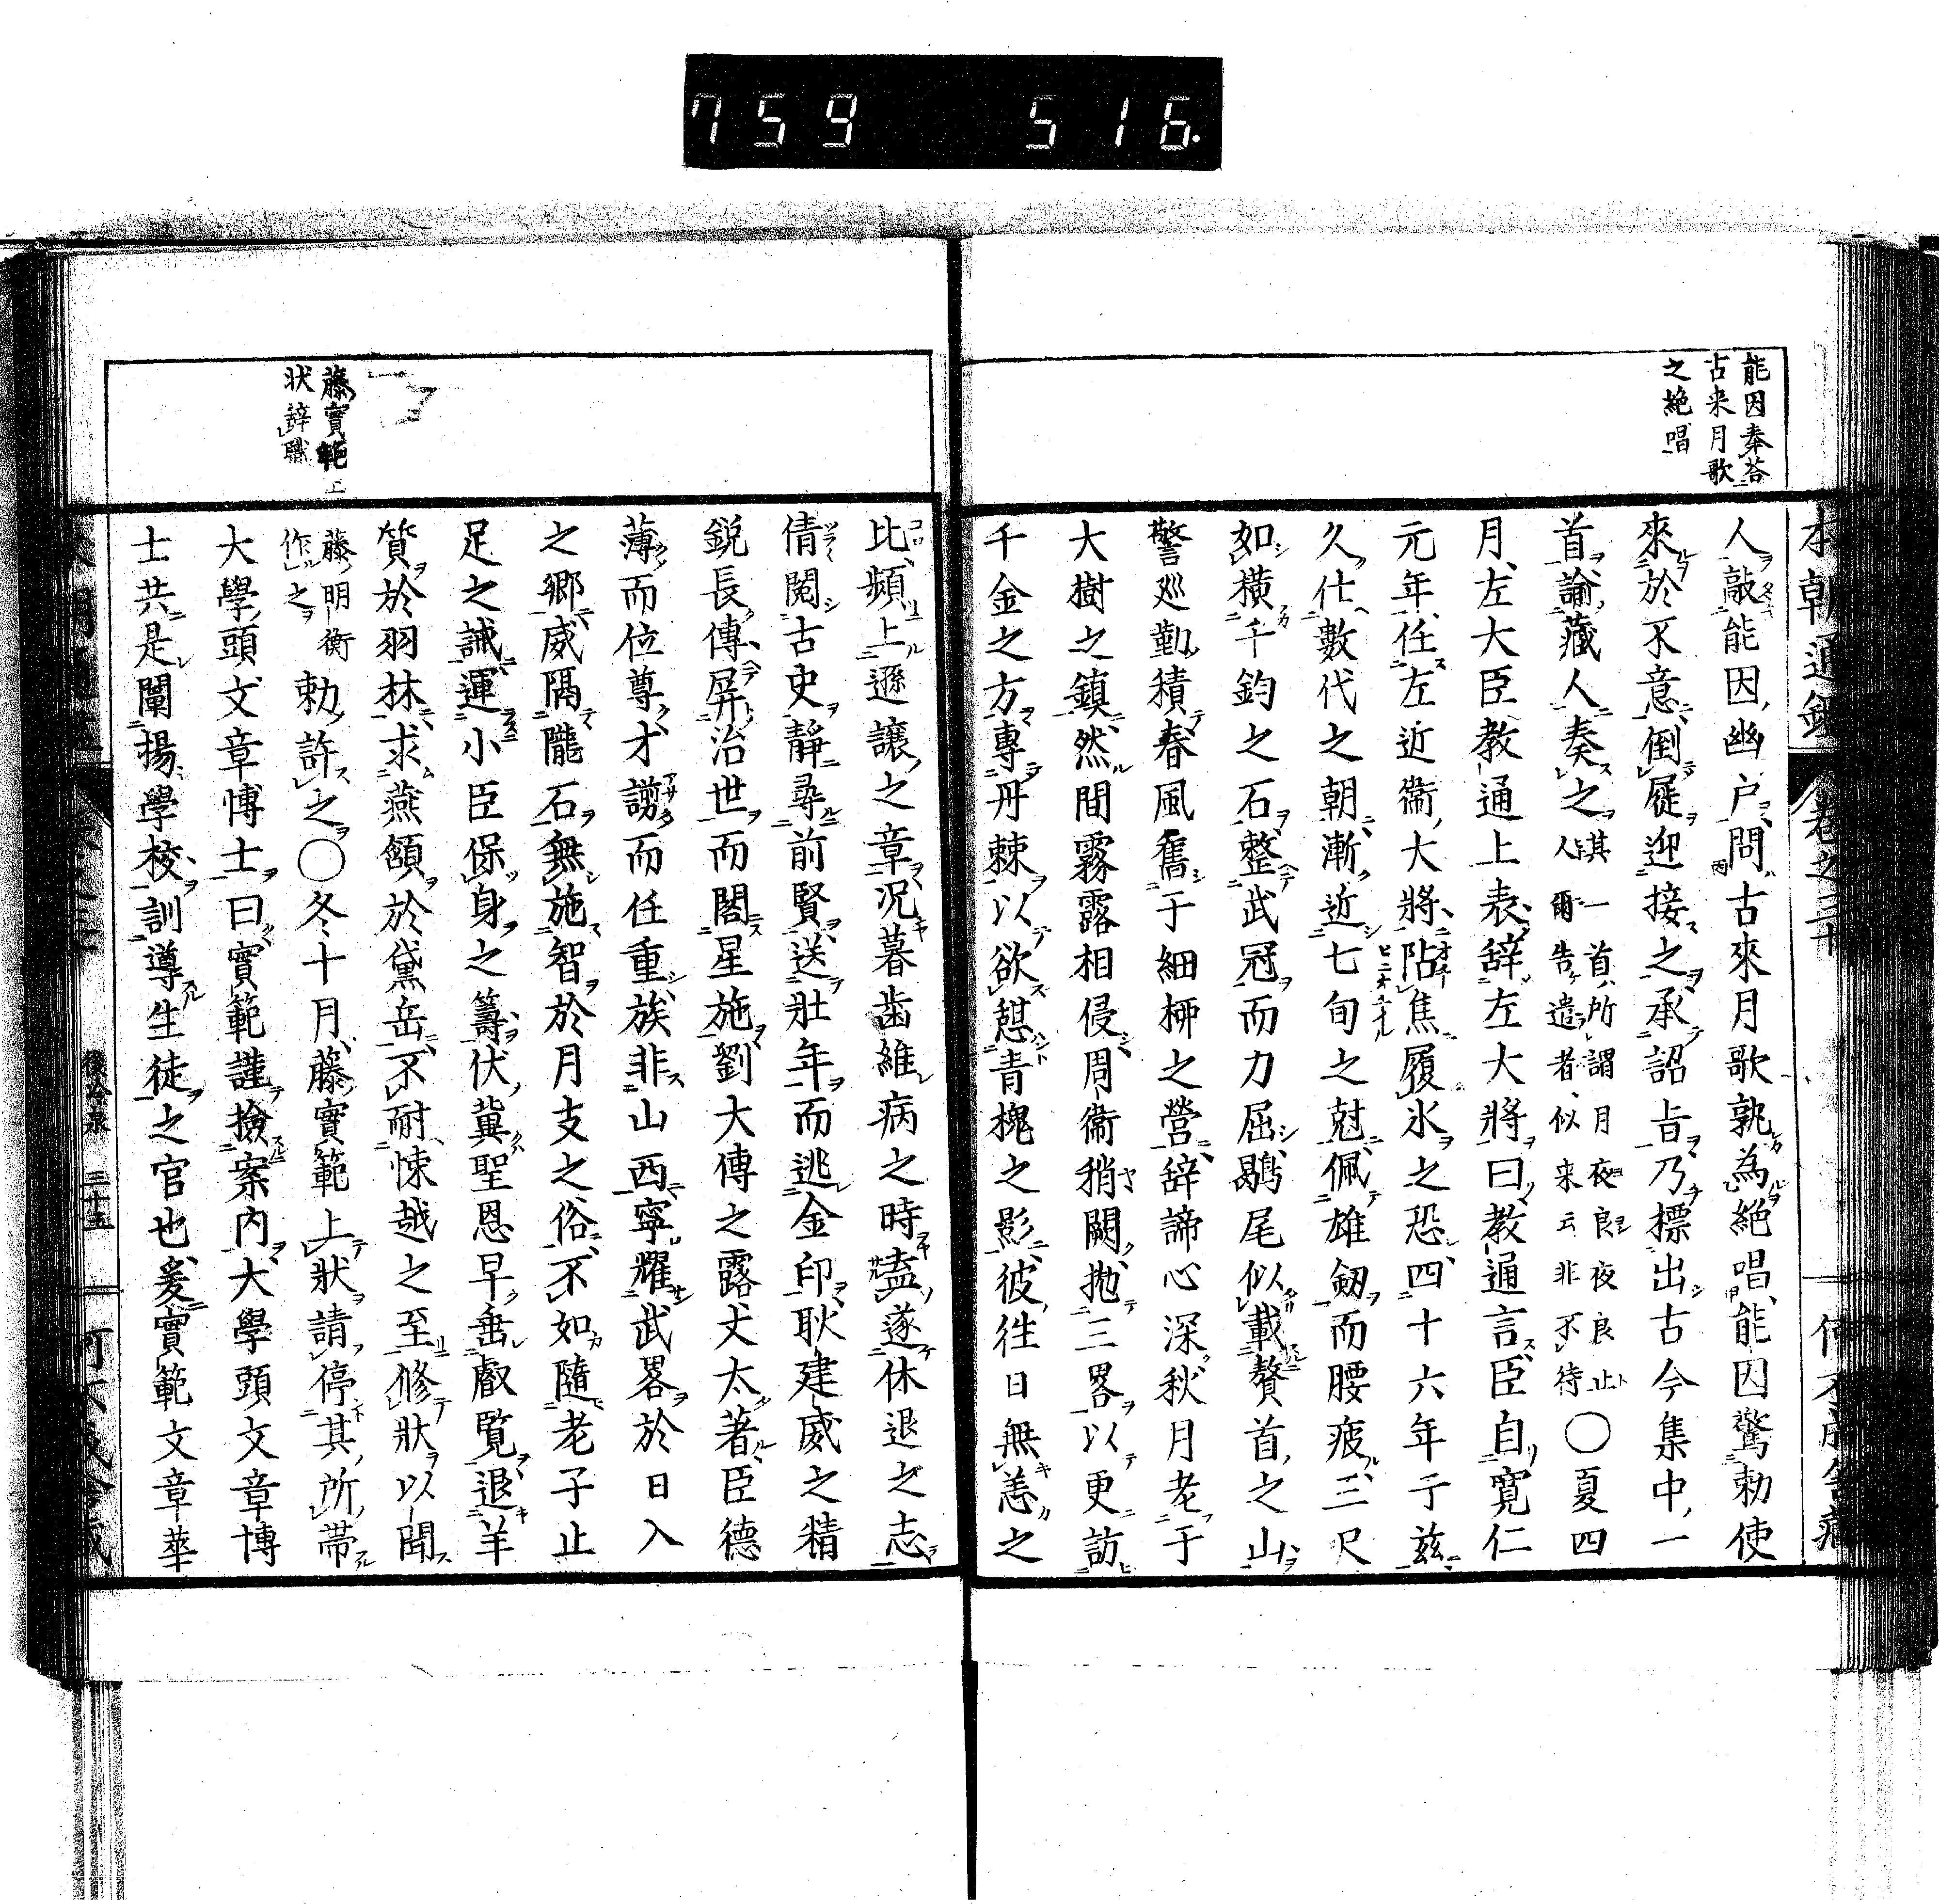 759 516.
能因奉荅
古来月歌
之絶唱
本朝通鑑 卷之三十
人敲能因幽户問古來月歌孰為絶唱能因驚勅使
來於不意倒屣迎接之承詔旨乃標出古今集中一
首諭藏人奏之其一首所謂月夜良夜良止人爾告遣者似来云非不待〇夏四
月左大臣教通上表辞左大將曰教通言臣自寛仁
元年任左近衞大將阽焦履氷之恐四十六年于兹
久仕數代之朝漸近七旬之尅佩雄劔而腰疲三尺
如横千鈞之石整武冠而力屈鶡尾似載贅首之山
警巡勤積春風舊于細柳之營辞諦心深秋月老于
大樹之鎮然間霧露相侵周衞稍闕抛三畧以更訪
千金之方專丹棘以欲憇青槐之影彼徃日無恙之
比頻上遜讓之章况暮齒維病之時盍遂休退之志
倩閲古史靜尋前賢送壯年而逃金印耿建威之精
鋭長傳屏治世而閣星施劉大傅之露丈太著臣德
薄而位尊才謭而任重族非山西寧耀武畧於日入
之郷威隔隴石無施智於月支之俗不如隨老子止
足之誡運小臣保身之籌伏冀聖恩早垂叡覽退羊
質於羽林求燕頷於黛岳不耐悚越之至修狀以聞
藤明衡作之勅許之〇冬十月藤實範上狀請停其所帶
大學頭文章博士曰實範謹撿案内大學頭文章博
士共是闡揚學校訓導生徒之官也爰實範文章華
藤實範上
状辤職
後冷泉 三十五